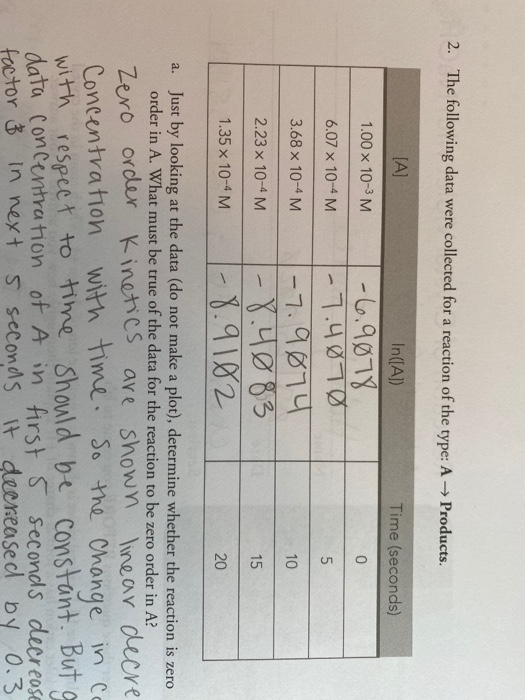 2. The following data were collected for a reaction of the type: A → Products.
[A] ln([A]) Time (seconds)
1.00 × 10⁻³ M -6.9078 0
6.07 × 10⁻⁴ M -7.4070 5
3.68 × 10⁻⁴ M -7.9074 10
2.23 × 10⁻⁴ M -8.4083 15
1.35 × 10⁻⁴ M -8.9102 20
a. Just by looking at the data (do not make a plot), determine whether the reaction is zero
order in A. What must be true of the data for the reaction to be zero order in A?
Zero order kinetics are shown linear decre
Concentration with time. So the change in c
with respect to time should be constant. But g
data concentration of A in first 5 seconds decrease
factor in next 5 seconds it decreased by 0.3